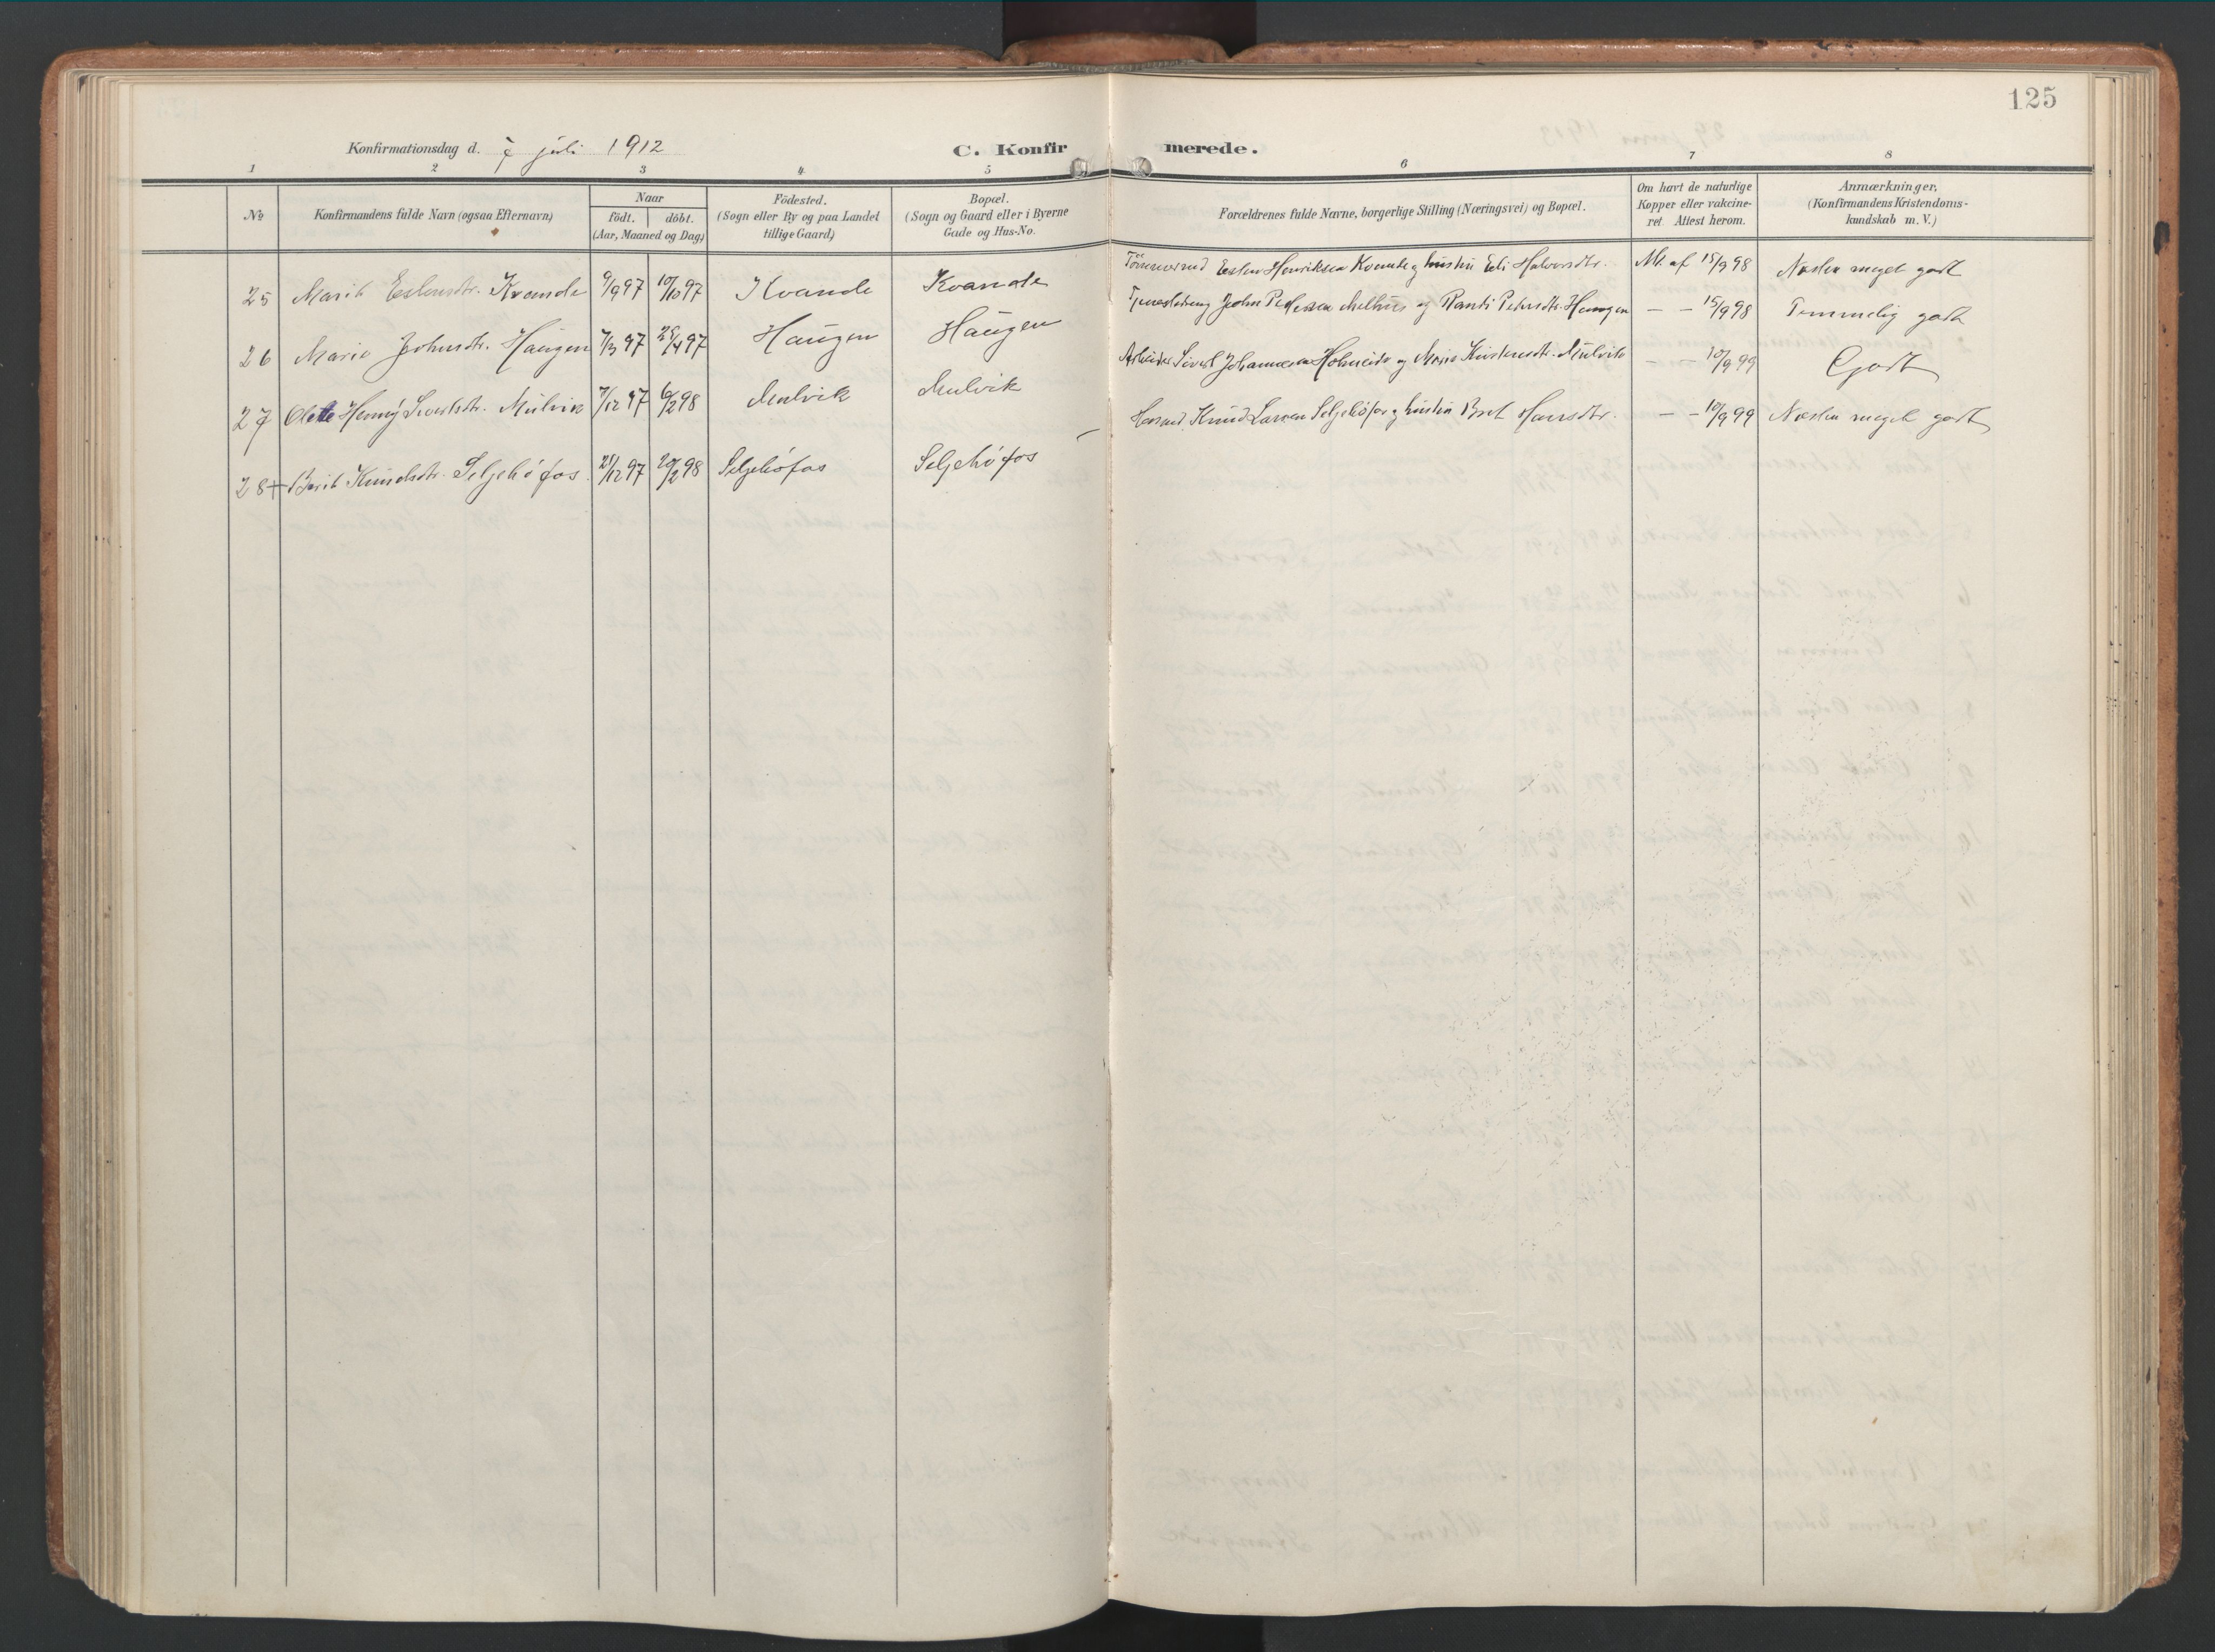 125
Konfirmationsdag d. 7 juli 1912
C. Konfirmerede.
1 2 3 4 5 6 7 8
№
Konfirmandens fulde Navn (ogsaa Efternavn)
Naar
födt. döbt.
(Aar, Maaned og Dag)
Födested.
(Sogn eller By og paa Landet
tillige Gaard)
Bopæl.
(Sogn og Gaard eller i Byerne
Gade og Hus-No.
Forældrenes fulde Navne, borgerlige Stilling (Næringsvei) og Bopæl.
Om havt de naturlige
Kopper eller vakcine-
ret. Attest herom.
Anmærkninger,
(Konfirmandens Kristendoms-
kundskab m. V.)
25 Marit Eslensdtr. Kvande 9/9 97 10/10 97 Kvande Kvande Esten Henriksen Kvande og hustru Eli Halvorsdtr. M. af 15/9 98 Næsten meget godt
26 Marie Johnsdtr. Haugen 7/3 97 25/4 97 Haugen Haugen John Pedersen Melhus og Randi Petersdtr. Haugen — — 15/9 98 Temmelig godt
27 Olette Henny Sivertsdtr. Mulvik 7/12 97 6/2 98 Mulvik Mulvik Arbeider Sivert Johannesen Holmeide og Marie Kristensdtr. Mulvik — — 10/9 99 Godt
28 + Berit Knudsdtr. Seljehöfos 21/12 97 20/2 98 Seljehöfos Seljehöfos Husmd. Knud Larsen Seljehöfos og hustru Brit Hansdtr. — — 10/9 99 Næsten meget godt